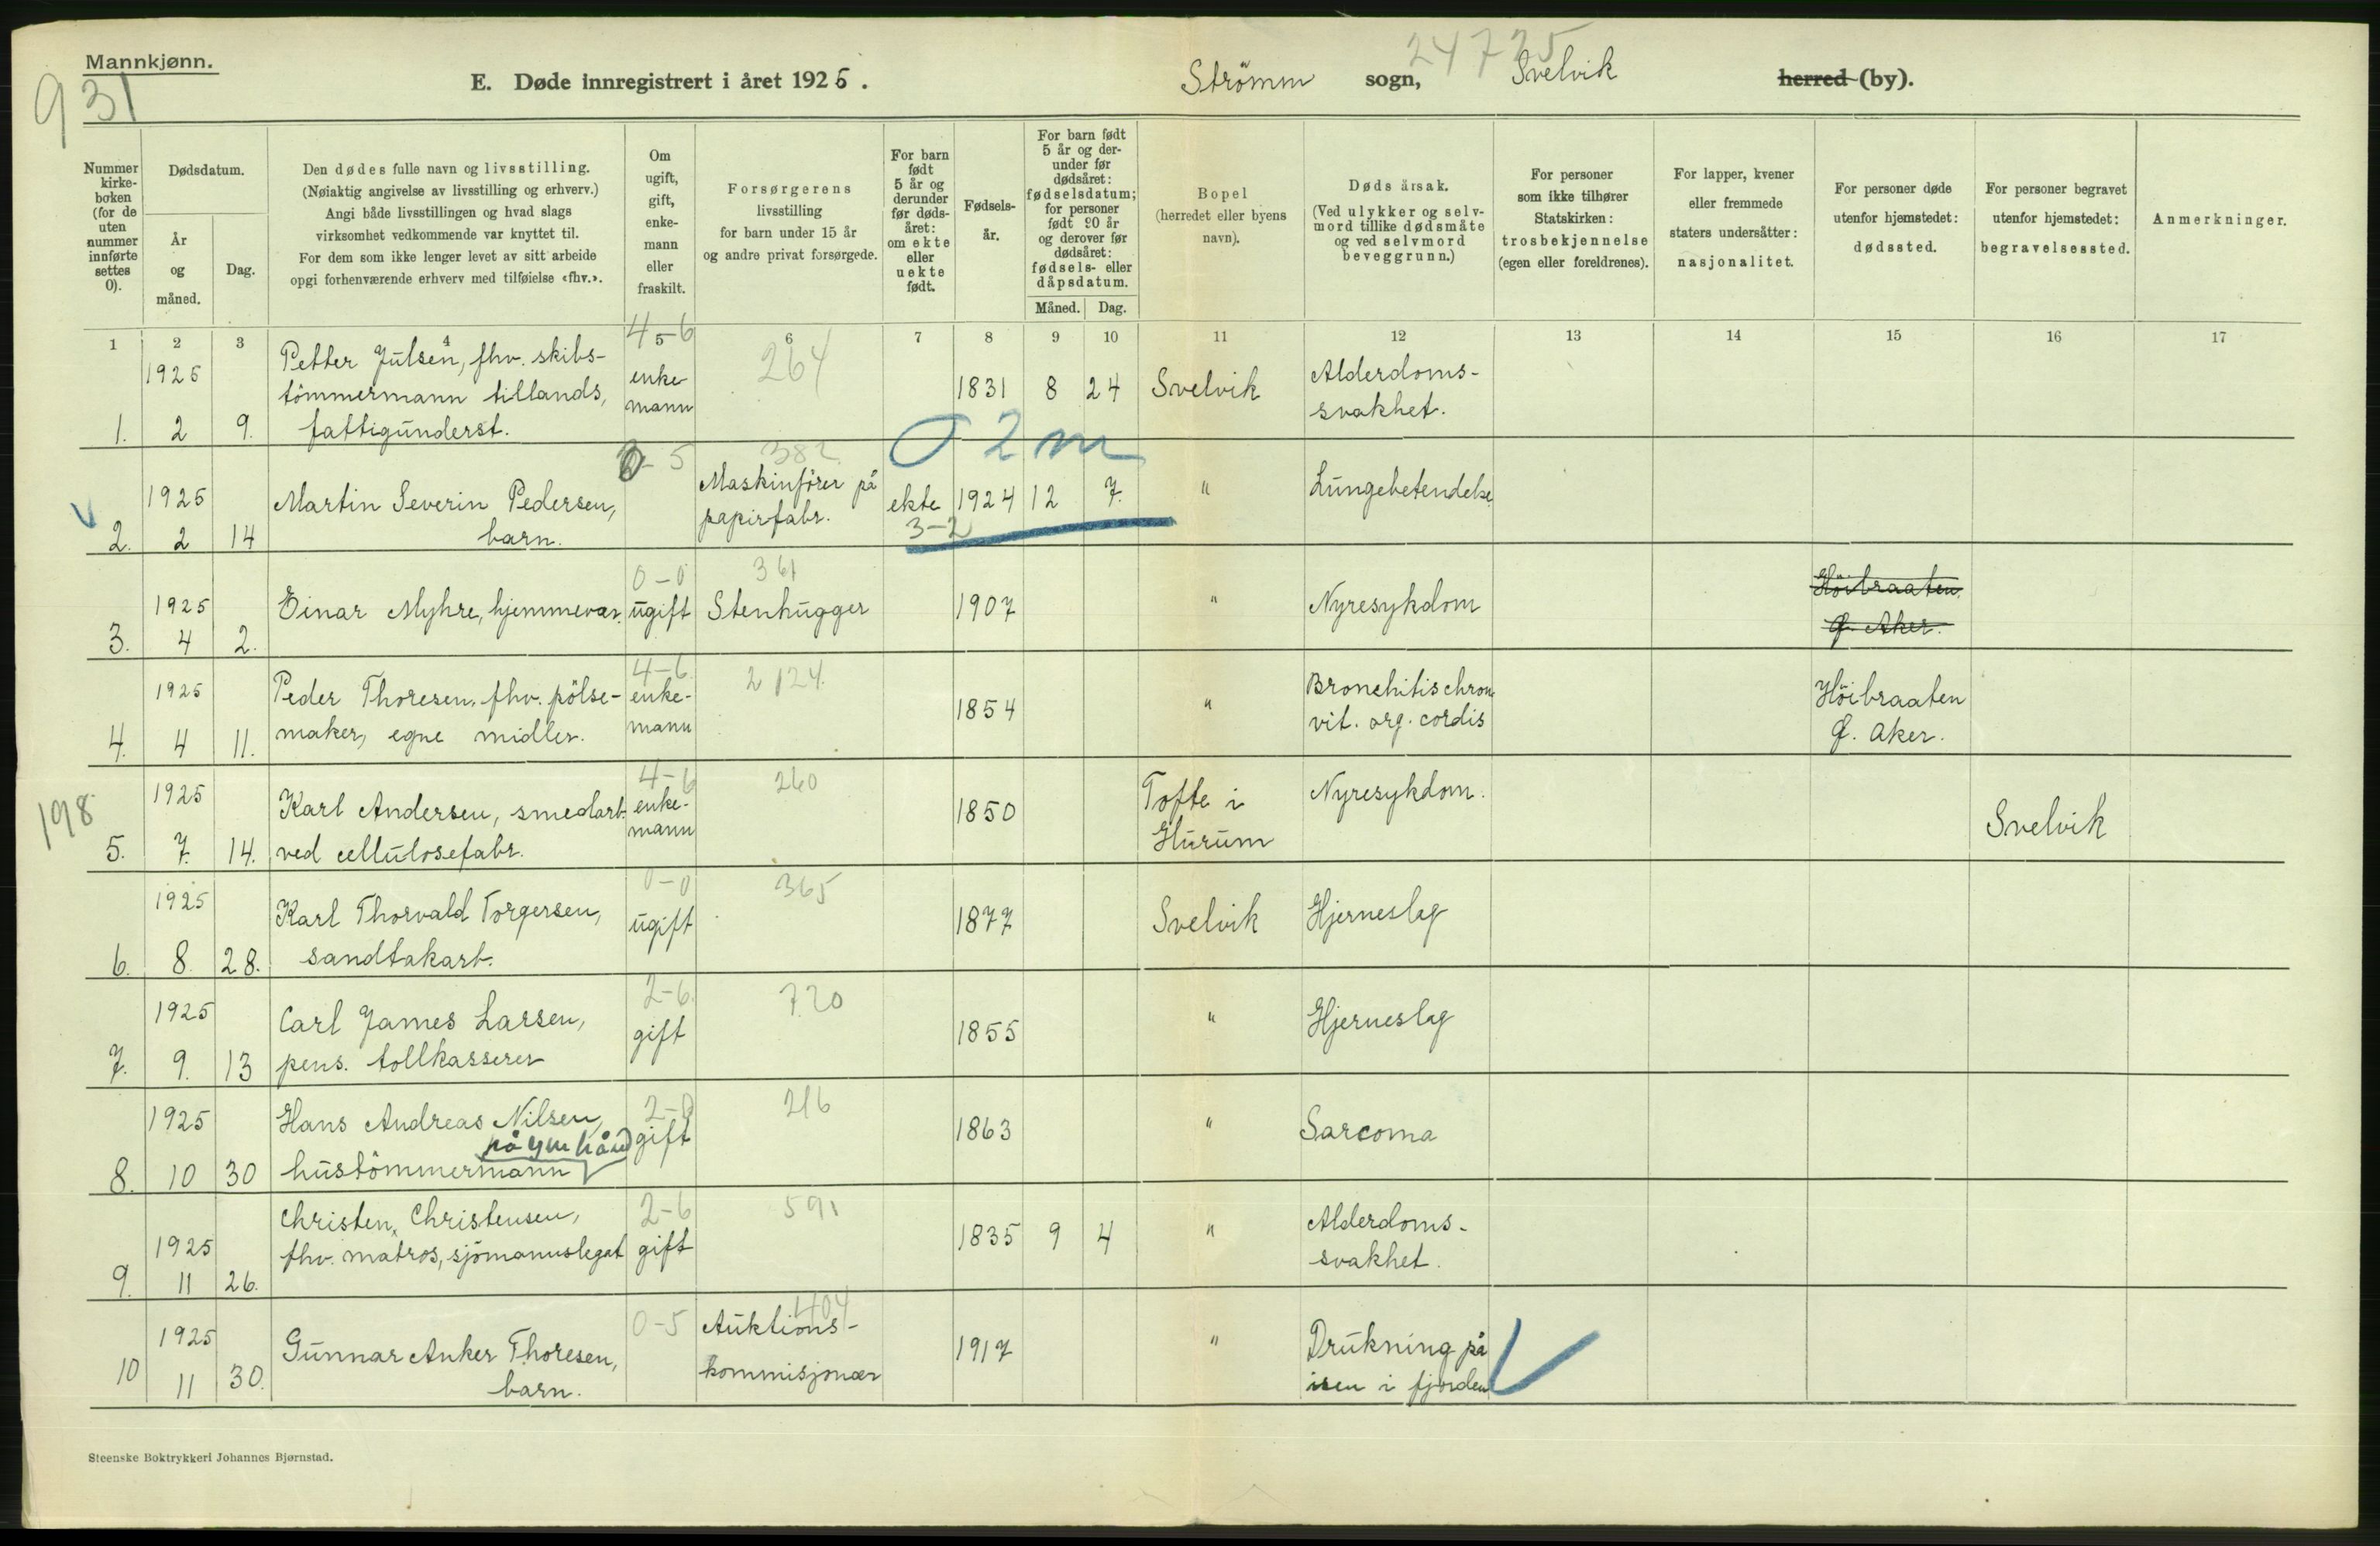 Mannkjønn.
931
E. Døde innregistrert i året 1925.
Strömm sogn, Svelvik herred (by).
24725
Nummer kirke-boken (for de uten nummer innførte settes 0).
Dødsdatum.
År og måned.
Dag.
Den dødes fulle navn og livsstilling.
(Nøiaktig angivelse av livsstilling og erhverv.)
Angi både livsstillingen og hvad slags
virksomhet vedkommende var knyttet til.
For dem som ikke lenger levet av sitt arbeide
opgi forhenværende erhverv med tilføielse «fhv.».
Om ugift, gift, enke-mann eller fraskilt.
Forsørgerens
livsstilling
for barn under 15 år
og andre privat forsørgede.
For barn født 5 år og derunder før døds-året: om ekte eller uekte født.
Fødsels-år.
For barn født 5 år og der-under før dødsåret: fødselsdatum; for personer født 90 år og derover før dødsåret: fødsels- eller dåpsdatum.
Måned. Dag.
Bopel
(herredet eller byens
navn).
Døds årsak.
(Ved ulykker og selv-
mord tillike dødsmåte
og ved selvmord
beveggrunn.)
For personer
som ikke tilhører
Statskirken:
trosbekjennelse
(egen eller foreldrenes).
For lapper, kvener
eller fremmede
staters undersåtter:
nasjonalitet.
For personer døde
utenfor hjemstedet:
dødssted.
For personer begravet
utenfor hjemstedet:
begravelsessted.
Anmerkninger.
1 2 3 4 5 6 7 8 9 10 11 12 13 14 15 16 17
4-6 264
1925 Petter Julsen, fhv. skibs- enke- 1831 8 24 Svelvik Alderdoms-
tömmermann tillands, mann svakhet.
1. 2 9. fattigunderst.
0 2 m
0-5 382
1925 Martin Severin Pedersen, Maskinförer på ekte 1924 12 7. " Lungebetendelse
papirfabr. 3-2
2. 2 14 barn.
0-0 361
1925 Einar Myhre, hjemmevær. ugift Stenhugger 1907 " Nyresykdom Höibraaten,
3. 4 2. Ø. Aker.
4-6 2 124.
1925 Peder Thoresen, fhv. pölse- enke- 1854 " Bronchitis chron. Höibraaten
4. 4 11. maker, egne midler. mann vit. org. cordis Ø. Aker.
198
4-6 260
1925 Karl Andersen, smedarb. enke- 1850 Tofte i Nyresykdom. Svelvik
5. 7. 14. ved cellulosefabr. mann Hurum
0-0 365
1925 Karl Thorvald Torgersen, ugift 1877 Svelvik Hjerneslag
6. 8. 28. sandtakarb.
2-6. 720
1925 Carl James Larsen, gift 1855 " Hjerneslag
7. 9. 13 pens. tollkasserer
2-0 216
1925 Hans Andreas Nilsen, gift 1863 " Sarcoma
8. 10 30 hustömmermann
2-6 591
Christen Christensen, 1835 9 4 " Alderdoms-
1925 fhv. matros, sjömannslegat gift svakhet.
9. 11 26.
0-5 404
1925 Gunnar Anker Thoresen, Auktions- 1917 " Drukning på
10 11 30. barn. kommisjonær isen i fjorden
Steenske Boktrykkeri Johannes Bjørnstad.